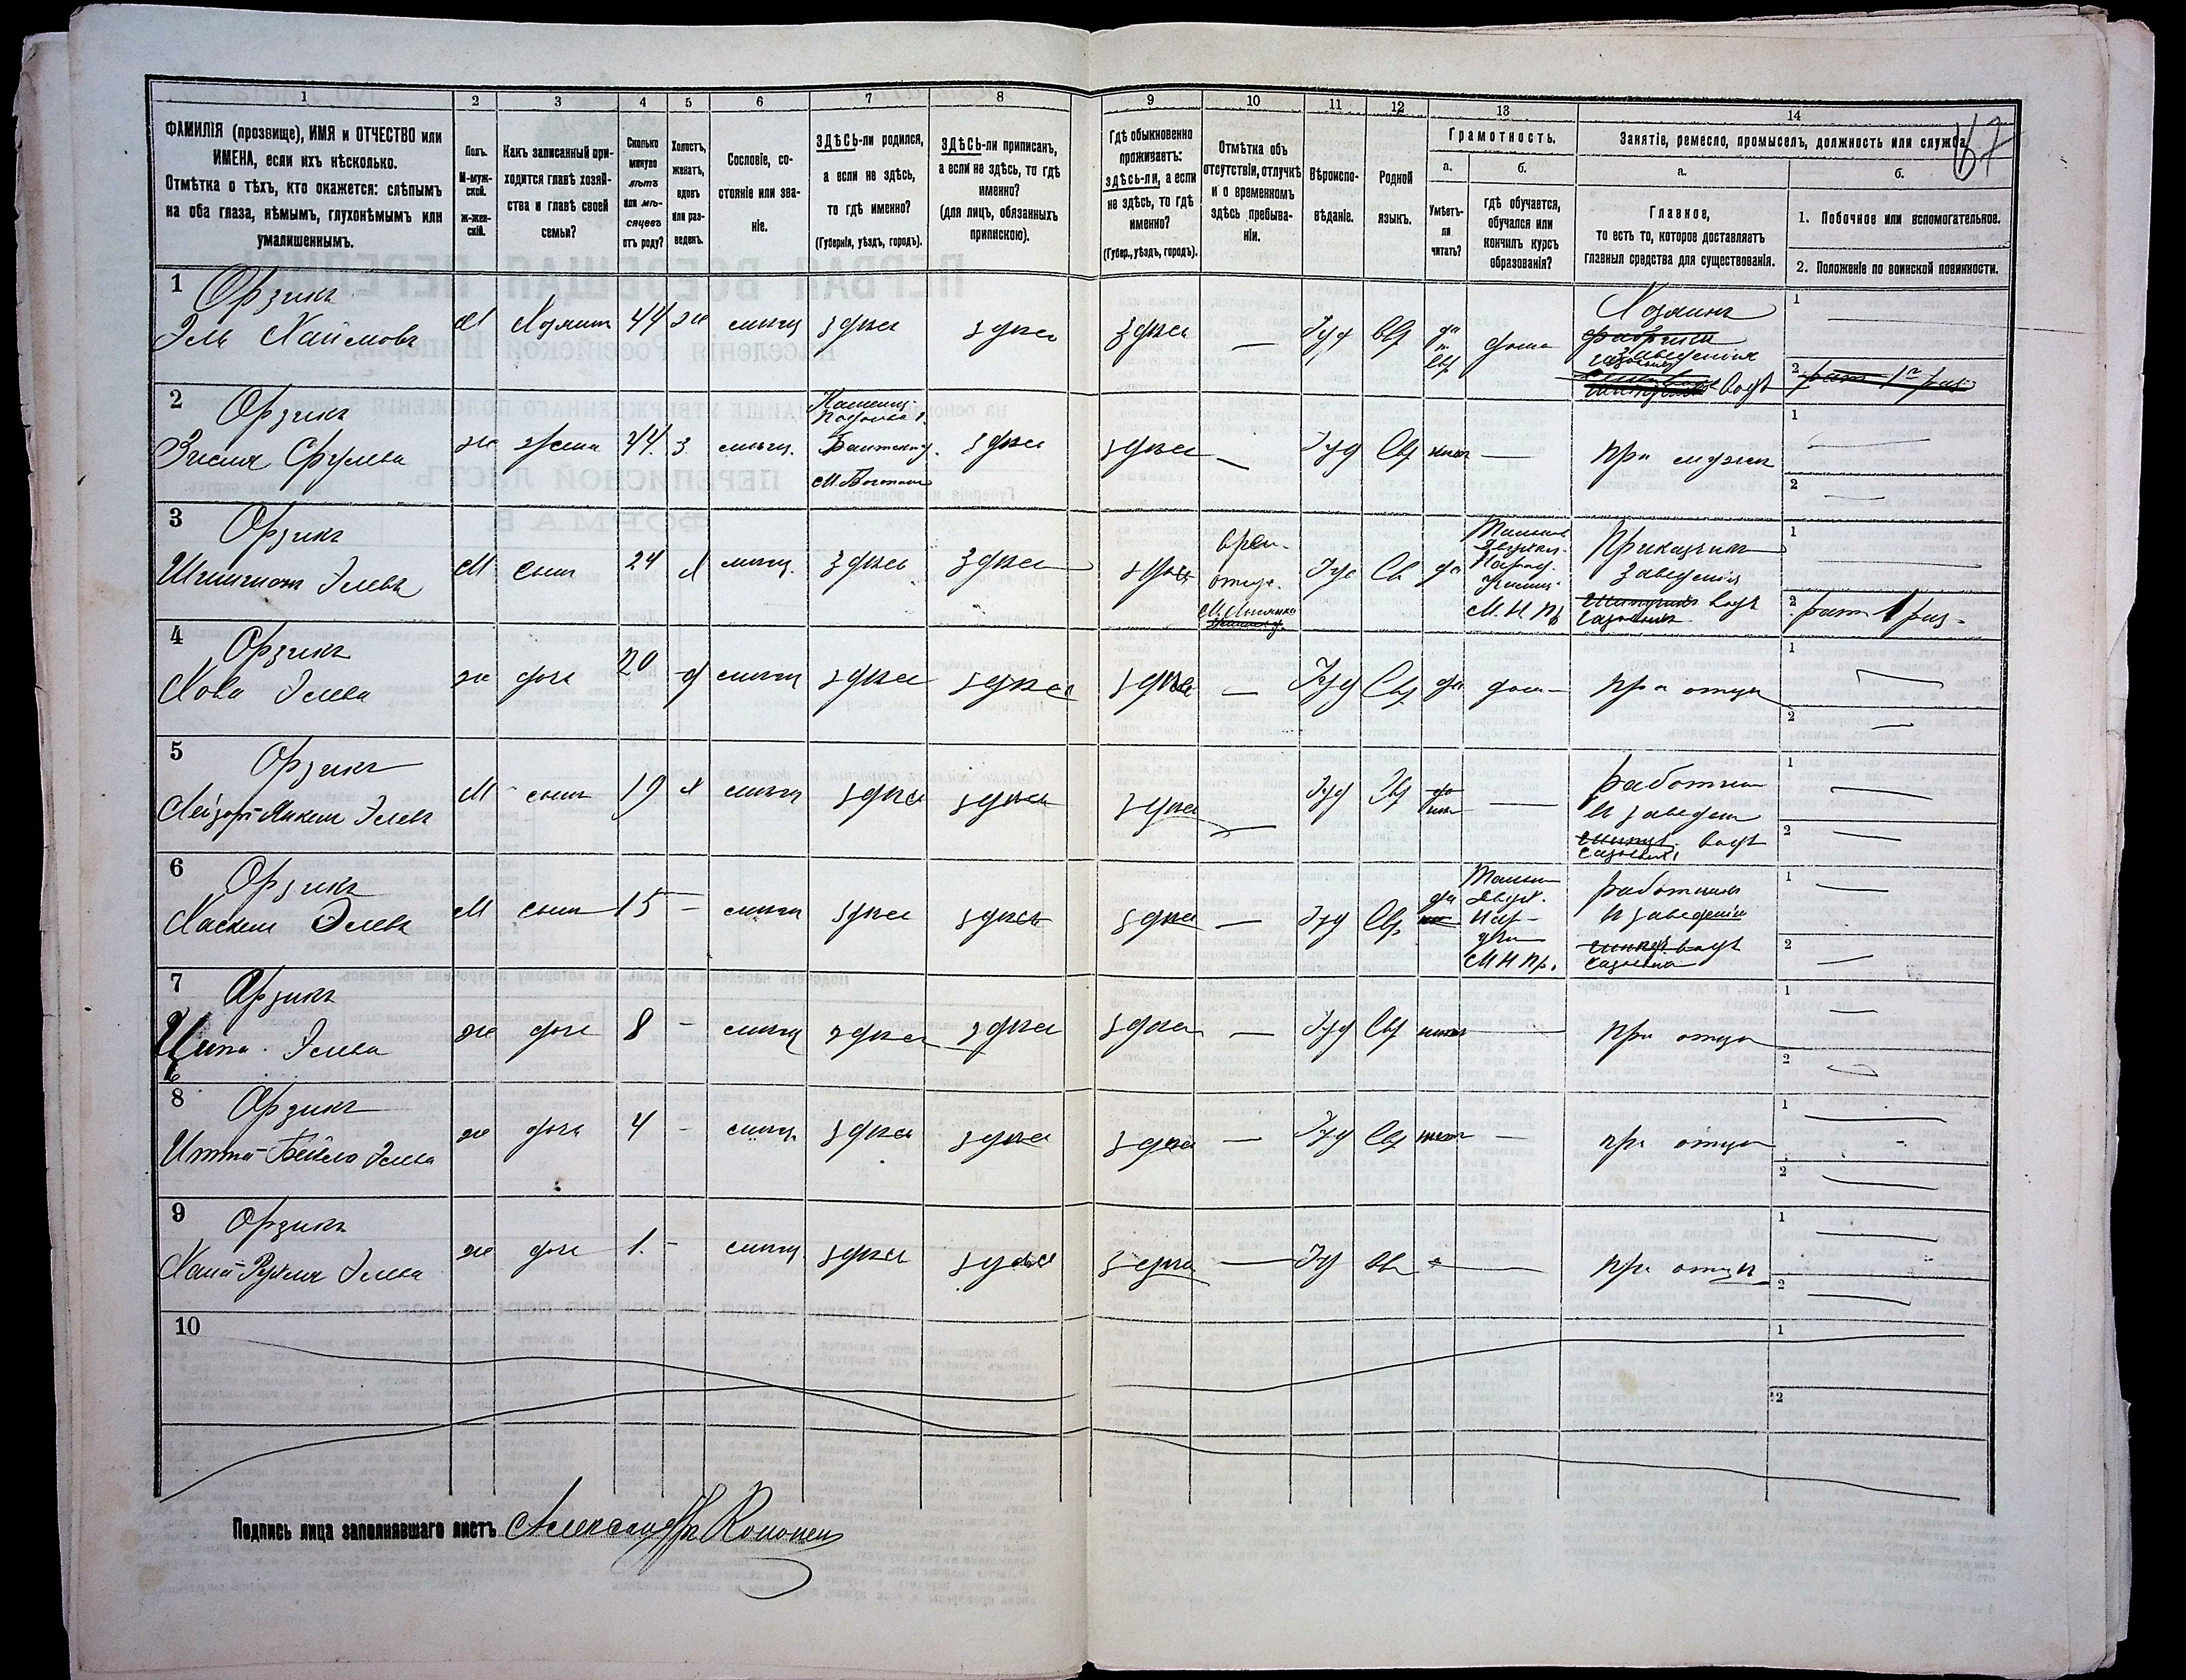 1 2 3 4 5 6 7 8 9 10 11 12 13 14
67
ФАМИЛІЯ (прозвище), ИМЯ и ОТЧЕСТВО или
ИМЕНА, если ихъ нѣсколько.
Отмѣтка о тѣхъ, кто окажется: слѣпымъ
на оба глаза, нѣмымъ, глухонѣмымъ или
умалишеннымъ.
Полъ.
М-муж-
ской.
ж-жен-
скій.
Какъ записанный при-
ходится главѣ хозяй-
ства и главѣ своей
семьи?
Сколько
минуло
лѣтъ
или мѣ-
сяцевъ
отъ роду?
Холостъ,
женатъ,
вдовъ
или раз-
веденъ.
Сословіе, со-
стояніе или зва-
ніе.
ЗДѢСЬ-ли родился,
а если не здѣсь,
то гдѣ именно?
(Губернія, уѣздъ, городъ).
ЗДѢСЬ-ли приписанъ,
а если не здѣсь, то гдѣ
именно?
(для лицъ, обязанныхъ
припискою).
Гдѣ обыкновенно
проживаетъ:
здѣсь-ли, а если
не здѣсь, то гдѣ
именно?
(Губер., уѣздъ, городъ).
Отмѣтка объ
отсутствіи, отлучкѣ
и о временномъ
здѣсь пребыва-
ніи.
Вѣроиспо-
вѣданіе.
Родной
языкъ.
Грамотность.
а.
Умѣетъ-
ли
читать?
б.
гдѣ обучается,
обучался или
кончилъ курсъ
образованія?
Занятіе, ремесло, промыселъ, должность или служба.
а.
Главное,
то есть то, которое доставляетъ
главныя средства для существованія.
б.
1. Побочное или вспомогательное.
2. Положеніе по воинской повинности.
1 Орзикъ
Эль Хаимовъ
М Хозяинъ 44 ж мѣщ здѣсь здѣсь здѣсь — Іуд Евр да дома
Хозяинъ
заведенія
водъ
1
2
2 Орзикъ
ж жена 44. з. мѣщ. здѣсь здѣсь — Іуд Евр нѣтъ — при мужѣ
1
2
3 Орзикъ
Элевъ
М сынъ 24 х мѣщ. здѣсь здѣсь здѣсь Іуд Ев да
М. Н. Пр
Приказчикъ
заведенія
водъ
1
2 рат 1 раз.
4 Орзикъ
Хова Элева
ж дочь 20 д мѣщ здѣсь здѣсь здѣсь — Іуд Евр да дома при отцѣ
1
2
5 Орзикъ
Элевъ
М сынъ 19 х мѣщ здѣсь здѣсь здѣсь — Іуд Евр —
работникъ
въ заведен
водъ
1
2
6 Орзикъ
Хаскель Элевъ
М сынъ 15 - мѣщ здѣсь здѣсь здѣсь — Іуд Евр да
М Н Пр.
работникъ
въ заведеніи
водъ
1
2
7 Орзикъ
Ципа Элева
ж дочь 8 - мѣщ здѣсь здѣсь здѣсь — Іуд Евр нѣтъ — при отцѣ
1
2
8 Орзикъ
Итта-Бейла Элева
ж дочь 4 - мѣщ. здѣсь здѣсь здѣсь — Іуд Евр нѣтъ — при отцѣ
1
2
9 Орзикъ
Хана-Рухля Элева
ж дочь 1. - мѣщ. здѣсь здѣсь здѣсь — Іуд Евр — при отцѣ
1
2
10
1
2
Подпись лица заполнявшаго листъ Александръ Кононен